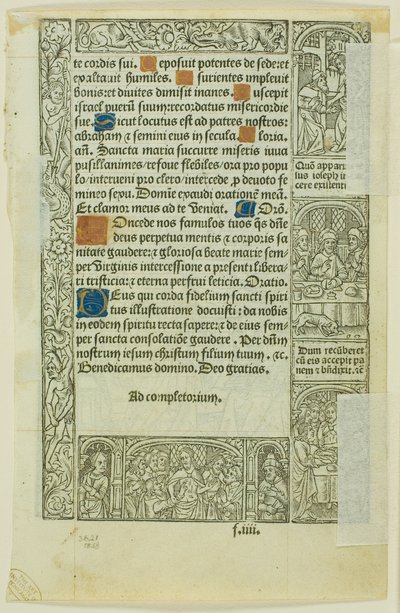 te cordis sui. Deposuit potentes de sede: et
exaltauit humiles. Esurientes impleuit
bonis: et diuites dimisit inanes. Suscepit
israel puerũ suum: recordatus misericordie
sue. Sicut locutus est ad patres nostros:
abraham ⁊ semini eius in secula. Gloria.
añ. Sancta maria succurre miseris iuua
pusillanimes: refoue flebiles: ora pro popu
lo: interueni pro clero: intercede ꝓ deuoto fe
mineo sexu. Domĩe exaudi orationẽ meã.
Et clamor meus ad te veniat. Orõ.
Concede nos famulos tuos q̃s dñe
deus perpetua mentis ⁊ corporis sa
nitate gaudere: ⁊ gloriosa beate marie sem
per virginis intercessione a presenti libera
ri tristicia: ⁊ eterna perfrui leticia. Oratio.
Deus qui corda fidelium sancti spiri
tus illustratione docuisti: da nobis
in eodem spiritu recta sapere: ⁊ de eius sem
per sancta consolatiõe gaudere. Per dñm
nostrum iesum christum filium tuum. ⁊c.
Benedicamus domino. Deo gratias.
Ad completorium.
Quõ appar
sus ioseph i
cere exilenti
Dum recũberet
cũ eis accepit pa
nem ⁊ bñdixit. ⁊c
f.iiii.